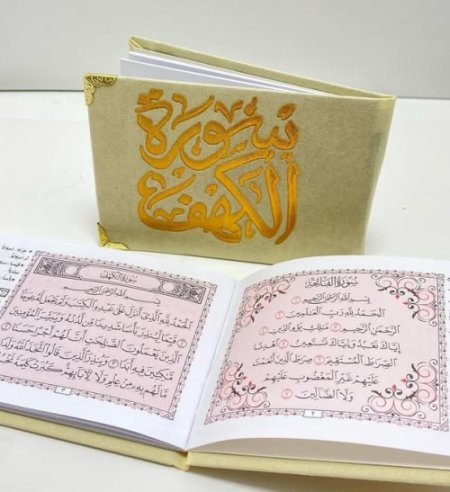 سورة
الكهف
سورة الفاتحة
بسم الله الرحمن الرحيم
الحمد لله رب العالمين
الرحمن الرحيم مالك يوم الدين
إياك نعبد وإياك نستعين اهدنا
الصراط المستقيم صراط الذين أنعمت
عليهم غير المغضوب عليهم
ولا الضالين
٢
سورة الكهف
بسم الله الرحمن الرحيم
الحمد لله الذي أنزل على عبده الكتاب ولم يجعل له عوجا
قيما لينذر بأسا شديدا من لدنه ويبشر المؤمنين
الذين يعملون الصالحات أن لهم أجرا حسنا
ماكثين فيه أبدا وينذر الذين قالوا اتخذ الله ولدا
ما لهم به من علم ولا لآبائهم كبرت كلمة
٣